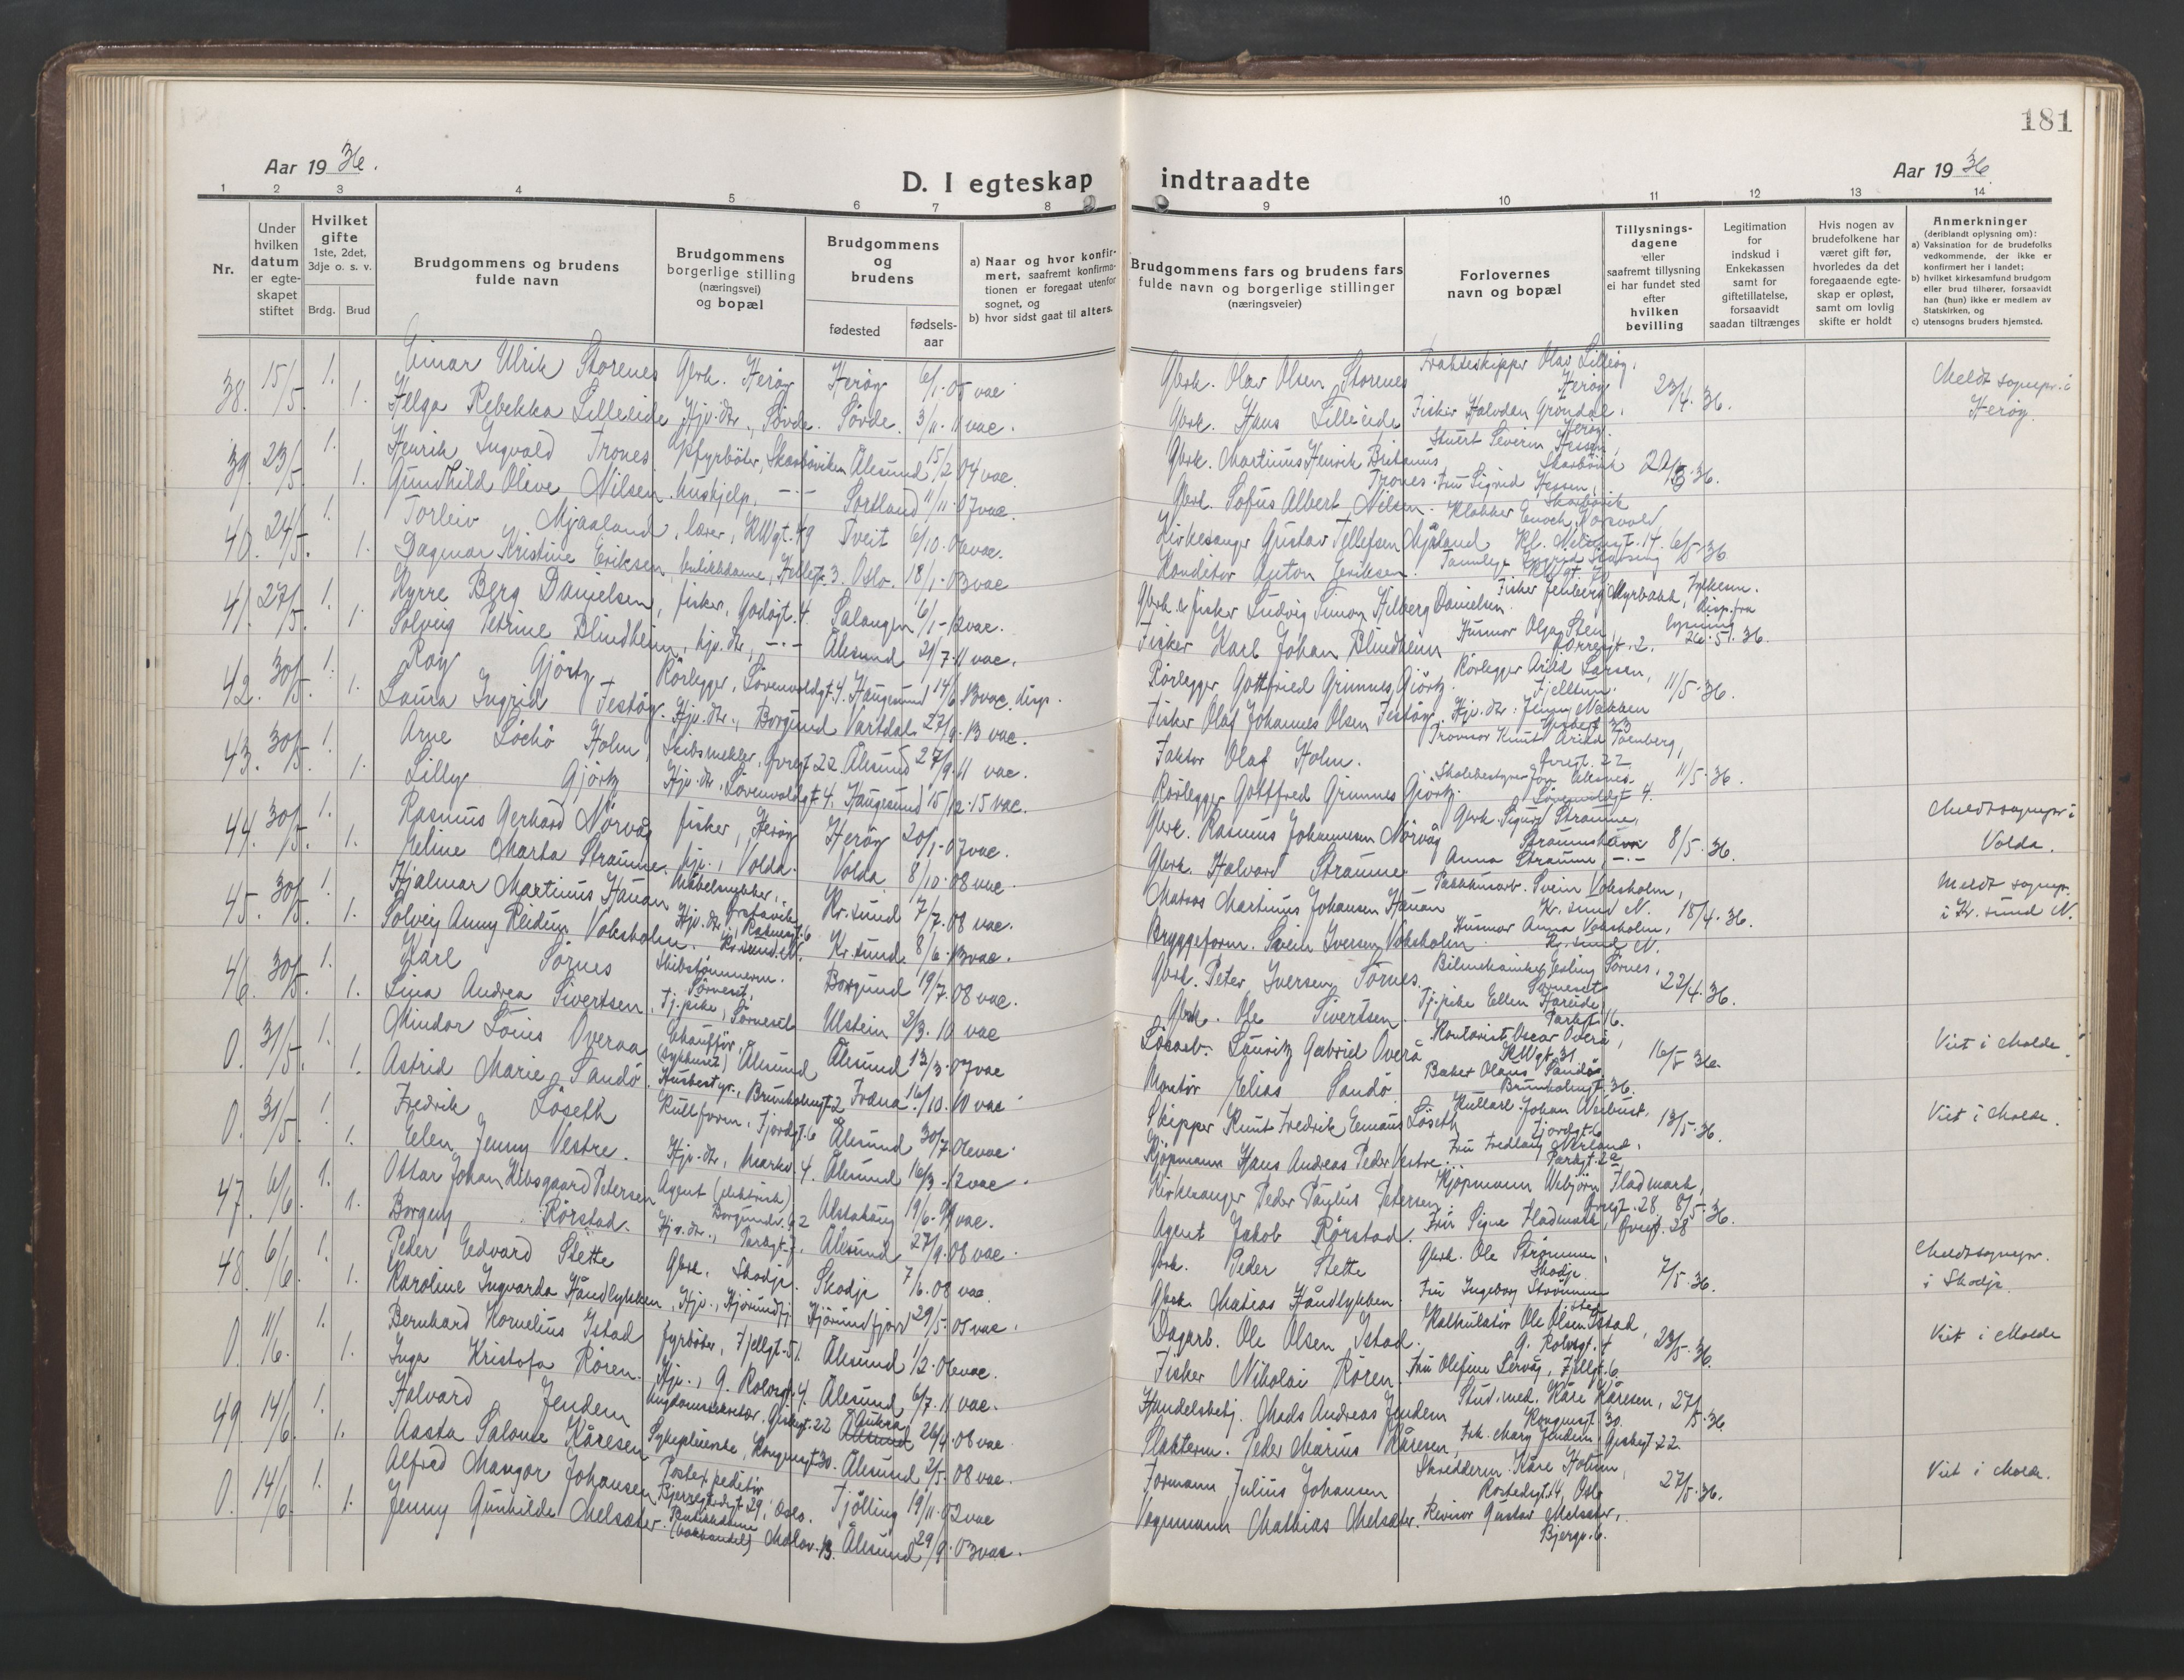 181
Aar 1936.
D. I egteskap indtraadte
Aar 1936
1 2 3 4 5 6 7 8 9 10 11 12 13 14
Nr.
Under hvilken datum er egte-skapet stiftet
Hvilket gifte 1ste, 2det, 3dje o. s. v.
Brdg. Brud
Brudgommens og brudens fulde navn
Brudgommens borgerlige stilling (næringsvei) og bopæl
Brudgommens og brudens
fødested
fødsels-aar
a) Naar og hvor konfir-mert, saafremt konfirma-tionen er foregaat utenfor sognet, og
b) hvor sidst gaat til alters.
Brudgommens fars og brudens fars fulde navn og borgerlige stillinger (næringsveier)
Forlovernes navn og bopæl
Tillysnings-dagene eller saafremt tillysning ei har fundet sted efter hvilken bevilling
Legitimation for indskud i Enkekassen samt for giftetillatelse, forsaavidt saadan tiltrænges
Hvis nogen av brudefolkene har været gift før, hvorledes da det foregaaende egte-skap er opløst, samt om lovlig skifte er holdt
Anmerkninger (deriblandt oplysning om):
a) Vaksination for de brudefolks vedkommende, der ikke er konfirmert her i landet;
b) hvilket kirkesamfund brudgom eller brud tilhører, forsaavidt han (hun) ikke er medlem av Statskirken, og
c) utensogns bruders hjemsted.
38. 15/5. 1. Einar Ulrik Storenes Gbrk. Herøy Herøy 6/1-05 vac Gbrk. Olav Olsen Storenes Frakteskipper Olav Lillebø, Herøy 23/4. 36. Meldt sognepr. i Herøy.
1. Helga Rebekka Lilleeide Hjv. dtr., Søvde. Søvde. 3/11. 11 vac. Gbrk. Hans Lilleeide Fisker Halvdan Grøndal, Herøy
39. 23/5. 1. Henrik Ingvald Trones Fyrbøter, Skarbøviken Ålesund 15/2 04 vac. Gbrk. Martinus Henrik Trones. Stuert Severin Hessen, Skarbøvik 36.
1. Gundhild Olive Nilsen. hushjelp, -"- Sortland 11/11. 07 vac. Gbrk. Sofus Albert Nilsen. Fru Sigrid Hessen, Skarbøvik
40. 24/5. 1. Torleiv Mjaaland, lærer, KWgt. 49 Tveit 6/10. 06 vac. Kirkesanger Gustav Tellefsen Mjåland Klokker Enoch 14. 6/5-36
1. Dagmar Kristine Eriksen, butikkdame, 3. Oslo. 18/1-03 vac Konditor Anton Eriksen.
41. 27/5. 1. Kyrre Berg Danielsen, fisker, Godøgt. 4 Salangen 6/1-12 vac. Gbrk. & fisker Ludvig Simon Hilberg Danielsen. Fisker Myrbakk, disp. fra lysning 26. 5. 36.
1 Solveig Petrine Blindheim, hjv. dtr., -"- Ålesund 21/7-11 vac. Fisker Karl Johan Blindheim Husmor Olga Sten,
42. 30/5. 1. Roy Gjørtz Rørlegger, Løvenvoldgt. 4. Haugesund 14/6 13 vac. disp. Rørlegger Gottfried Grimnes Gjørtz. Rørlegger Arild Larsen, Fjelltun. 11/5. 36.
1. Laura Ingrid Festøy. Hjv. dtr., Borgund Vartdal 22/9. 13 vac. Fisker Olaf Johannes Olsen Festøy Hjv. dtr. Jenny Nakken
43. 30/5. 1. Arne Løchø Holm, Skibsmekler, Øvregt 22. Ålesund 27/9. 11 vac. Faktor Olaf Holm. Provisor Knut Arild Toenberg, Øvregt. 22. 11/5. 36.
1. Lilly Gjørtz Hjv. dtr. Løvenvoldgt 4. Haugesund 15/12. 15 vac. Rørlegger Gottfred Grimnes Gjørtz. Løvenvoldgt 4.
44. 30/5. 1. Rasmus Gerhard Nørvåg fisker, Herøy Herøy 20/1-07 vac. Gbrk. Rasmus Johannesen Nørvåg Gbrk. Sigurd Straume, Straumshavn 8/5. 36. Meldt sognepr. i Volda.
1. Eline Marta Straume. hjv., Volda. Volda 8/10. 08 vac. Gbrk. Halvard Straume. Anna Straume, -"-
45. 30/5. 1. Hjalmar Martinus Hauan Møbelsnekker, Kr.sund 7/7. 08 vac. Matros Martinus Johansen Hauan Pakkhusarb. Svein Voksholm, Kr.sund N. 18/4. 36. Meldt sognepr. i Kr.sund N.
1. Solveig Anny Reidun Voksholm. Hjv. dtr., Kr.sund N. Kr.sund. 8/6. 13 vac. Bryggeform. Svein Iversen Voksholm. Husmor Anna Voksholm, Kr.sund N.
46. 30/5. 1. Karl Sørnes Skibstømmerm. Sørneset, Borgund 19/7. 08 vac. Gbrk. Peter Iversen Sørnes. Bilmekaniker Erling Sørnes, Sørneset 22/4. 36.
1. Lina Andrea Sivertsen. Tj. pike, Sørneset Ulstein 2/3. 10 vac Gbrk. Ole Sivertsen. Tj. pike Ellen Hareide, Parkgt. 16.
0. 31/5. 1. Mindor Louis Overaa Chauffør, (sykehuset) Ålesund Ålesund 13/3. 07 vac Løsarb. Lauritz Gabriel Overå Kontorist Oscar Overå, KWgt. 31. 16/5 36. Viet i Molde.
1. Astrid Marie Sandø. Husbestyr., Brunholmgt. 2 Fræna 16/10. 10 vac Montør Elias Sandø Baker Olaus Sandø, Brunholmgt. 36.
0. 31/5. 1. Fredrik Løseth Kullform., Fjordgt. 6 Ålesund 30/7. 06 vac. Skipper Knut Fredrik Emaus Løseth Kullarb. Johan Weibust, Fjordgt. 6 13/5. 36. Viet i Molde.
1. Ellen Jenny Vestre. Hjv. dtr., Markv. 4. Ålesund 16/3. 12 vac. Kjøpmann Hans Andreas Peder Vestre. Fru Fredlaug Nørland, Parkgt. 2a
47. 6/6. 1. Ottar Johan Hebsgaard Petersen Agent (elektrisk) Borgundv. 62 Alstahaug 19/6. 99 vac. Kirkesanger Peder Paulus Petersen Kjøpmann Webjørn Fladmark, Øvregt. 28. 8/5. 36.
1. Borgny Rørstad. Hjv. dtr., Parkgt. 7. Ålesund 27/9. 08 vac. Agent Jakob Rørstad. Fru Signe Fladmark, Øvregt. 28
48. 6/6. 1. Peder Edvard Stette Gbrk. Skodje. Skodje 7/6. 08 vac. Gbrk. Peder Stette Gbrk. Ole Strømmen, Skodje 7/5. 36. Meldt sognepr. i Skodje.
1. Karoline Ingvarda Håndlykken, Hjv., Hjørundfj. Hjørundfjord 29/5. 05 vac. Gbrk. Matias Håndlykken. Fru Ingeborg Strømmen
0. 11/6. 1. Bernhard Kornelius Istad fyrbøter, Fjellgt. 51. Ålesund 1/2. 06 vac. Dagarb. Ole Olsen Istad. Kalkulatør Ole Olsen Istad, G. Rolvsgt. 4 23/5. 36. Viet i Molde
1. Inga Kristofa Røren. Hjv., G. Rolvsgt. 4. Ålesund 6/7. 11 vac. Fisker Nikolai Røren. Fru Olefine Lervåg, Fjellgt. 6.
49. 14/6. 1. Halvard Jendem ungdomssekretær, 22 Aukra Ålesund 26/4. 08 vac Handelsbetj. Mads Andreas Jendem Stud. med. Kåre Kåresen, Kongensgt 30. 27/5. 36
1. Aasta Salome Kåresen Sykepleierske, Kongensgt. 30. Ålesund 2/5. 08 vac. Slakterm. Peder Marius Kåresen, Frk. Mary Jendem, 22.
0. 14/6. 1. Alfred Mangor Johansen Postekspeditør 29, Oslo. Tjølling 19/11. 02 vac Formann Julius Johansen Skredderm. Kåre Holum, Rostedsgt. 14, Oslo 27/5. 36. Viet i Molde.
1. Jenny Gunhilde Melsæter. Butikkdame (bokhandel) Molov. 13. Ålesund 29/9. 03 vac. Vognmann Mathias Melsæter. Revisor Gustav Melsæter, Bjergv. 6.